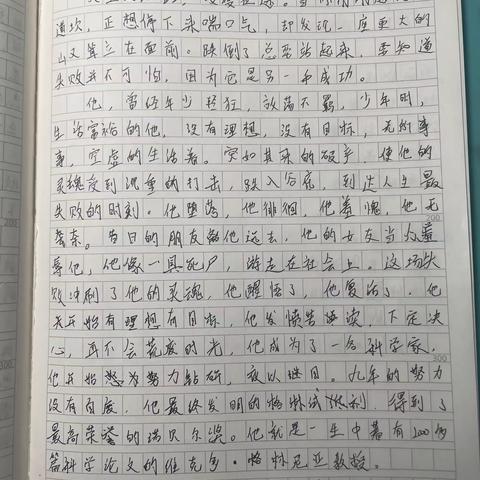 道坎，正想停下来喘口气，却发现一座更大的
山又耸立在面前。跌倒了总要站起来，要知道
失败并不可怕，因为它是另一个成功。
他，曾经年少轻狂，放荡不羁，少年时，
生活富裕的他，没有理想，没有目标，无所事
事，空虚的生活着。突如其来的破产，使他的
灵魂受到沉重的打击，跌入谷底，到达人生最
失败的时刻。他堕落，他徘徊，他羞愧，他无
奈。昔日的朋友离他远去，他的女友当众羞
辱他，他像一具死尸，游走在社会上。这场失
败冲刷了他的灵魂，他醒悟了，他复活了，他
开始有理想有目标，他发愤苦读，下定决
心，再不会荒度时光，他成为了一名科学家，
他开始努力钻研，夜以继日。九年的努力
没有白废，他最终发明的格林试剂，得到了
最高荣誉的瑞贝尔奖。他就是一生中著有200多
篇科学论文的维克多·格林尼亚教授。
200
300